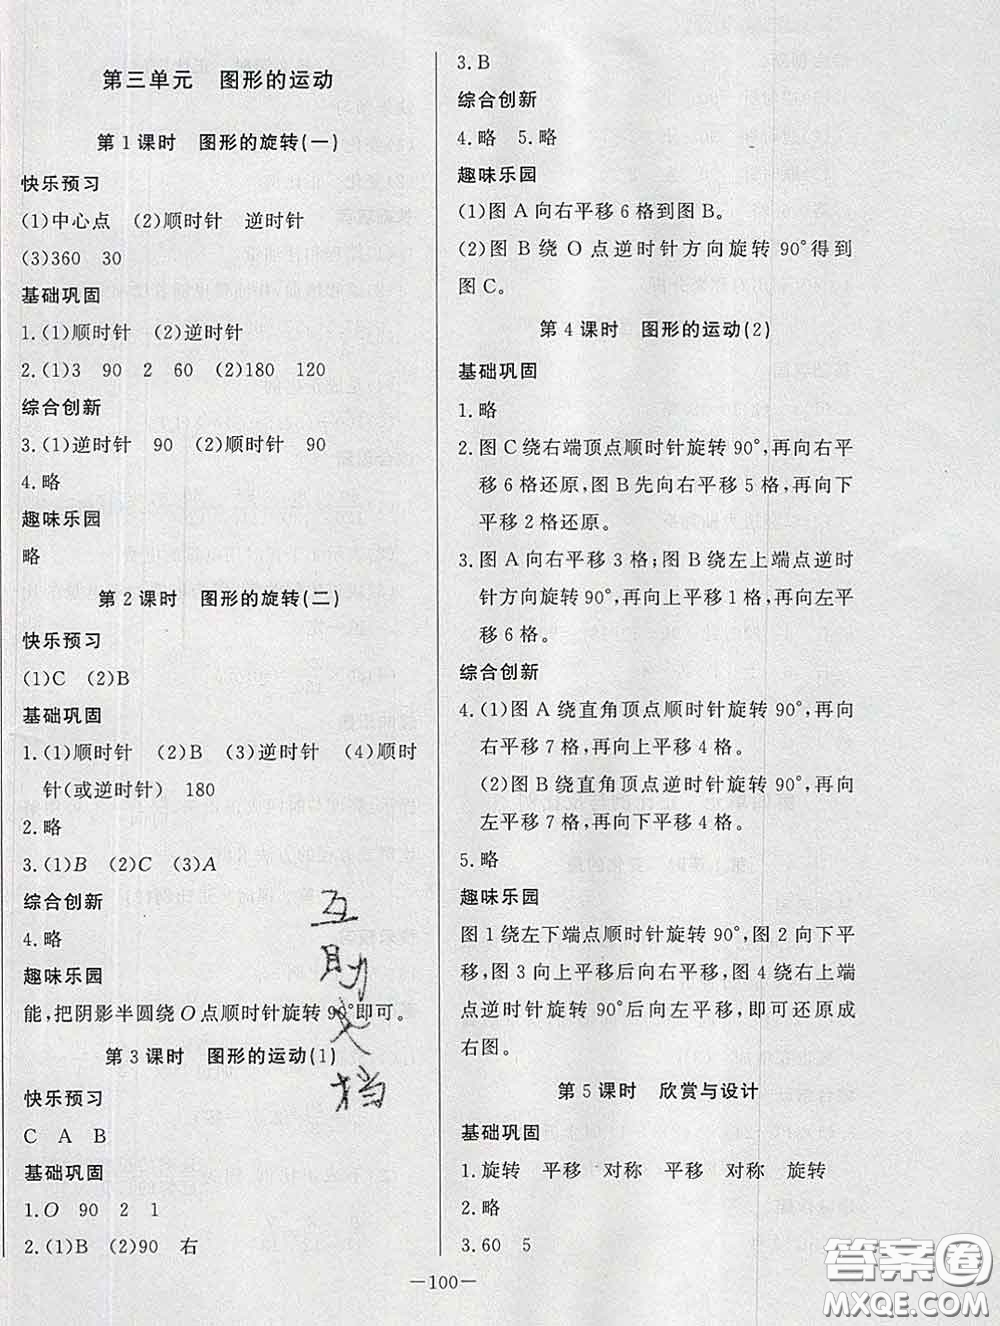 第三单元　图形的运动
第1课时　图形的旋转(一)
快乐预习
(1)中心点　(2)顺时针　逆时针
(3)360　30
基础巩固
1.(1)顺时针　(2)逆时针
2.(1)3　90　2　60　(2)180　120
综合创新
3.(1)逆时针　90　(2)顺时针　90
4.略
趣味乐园
略
第2课时　图形的旋转(二)
快乐预习
(1)C　(2)B
基础巩固
1.(1)顺时针　(2)B　(3)逆时针　(4)顺时
针(或逆时针)　180
2.略
3.(1)B　(2)C　(3)A
综合创新
4.略
趣味乐园
能,把阴影半圆绕O点顺时针旋转90°即可。
第3课时　图形的运动(1)
快乐预习
C　A　B
基础巩固
1.O　90　2　1
2.(1)B　(2)90　右
3.B
综合创新
4.略　5.略
趣味乐园
(1)图A向右平移6格到图B。
(2)图B绕O点逆时针方向旋转90°得到
图C。
第4课时　图形的运动(2)
基础巩固
1.略
2.图C绕右端顶点顺时针旋转90°,再向右平
移6格还原,图B先向右平移5格,再向下
平移2格还原。
3.图A向右平移3格;图B绕左上端点逆时
针方向旋转90°,再向上平移1格,再向左平
移6格。
综合创新
4.(1)图A绕直角顶点顺时针旋转90°,再向
右平移7格,再向上平移4格。
(2)图B绕直角顶点逆时针旋转90°,再向
左平移7格,再向下平移4格。
5.略
趣味乐园
图1绕左下端点顺时针旋转90°,图2向下平
移,图3向上平移后向右平移,图4绕右上端
点逆时针旋转90°后向左平移,即可还原成
右图。
第5课时　欣赏与设计
基础巩固
1.旋转　平移　对称　平移　对称　旋转
2.略
3.60　5
互助文档
—100—
答案圈
MXQE.COM